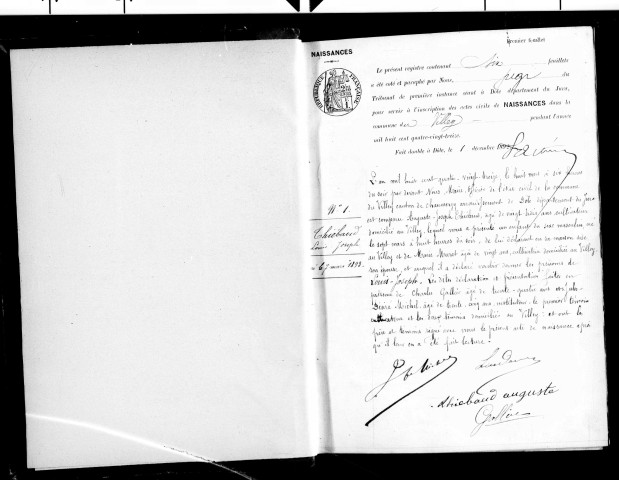 Premier feuillet
NAISSANCES
RÉPUBLIQUE FRANÇAISE
Le présent registre contenant Six feuillets
a été coté et paraphé par Nous, juge du
Tribunal de première instance séant à Dole département du Jura,
pour servir à l'inscription des actes civils de NAISSANCES dans la
commune de Villey pendant l'année
mil huit cent quatre-vingt-treize.
Fait double à Dôle, le 1 décembre
N° 1
Thiébaud
Louis Joseph
7 mars 1893.
L'an mil huit cent quatre-vingt treize, le huit mars à six heures
du soir par devant Nous Maire officier de l'état civil de la commune
du Villey canton de Chaussin arrondissement de Dole département du Jura
est comparu Auguste-Joseph Thiébaud, âgé de vingt six ans cultivateur
domicilié au Villey, lequel nous a présenté un enfant du sexe masculin, né
le sept mars à huit heures du soir, de lui déclarant en sa maison sise
au Villey et de Marie âgé de vingt ans, cultivatrice domiciliée au Villey
son épouse, et auquel il a déclaré vouloir donner les prénoms de
Louis-Joseph. Les dites déclaration et présentation faites en
présence de Charles âgé de trente-quatre ans et Jules
âgé de trente cinq ans, instituteur, le premier témoin
cultivateur et les deux témoins domiciliés au Villey; et ont le
père et témoins signé avec nous le présent acte de naissance après
qu'il leur en a été fait lecture.
thiebaud auguste